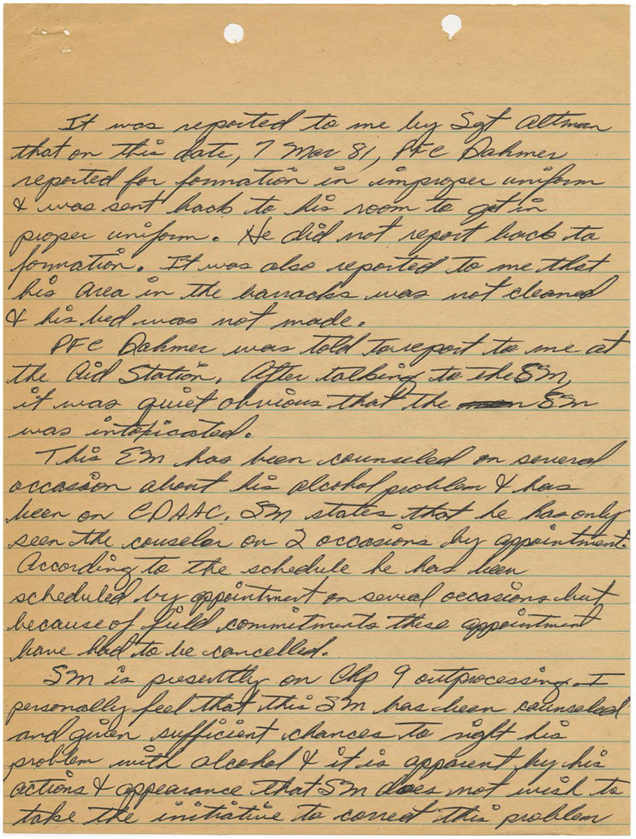 It was reported to me by Sgt Altman
that on this date, 7 Mar 81, PFC Dahmer
reported for formation in improper uniform
& was sent back to his room to get in
proper uniform. He did not report back to
formation. It was also reported to me that
his area in the barracks was not cleaned
& his bed was not made.
PFC Dahmer was told to report to me at
the Aid Station. After talking to the SM,
it was quiet obvious that the SM
was intoxicated.
This EM has been counseled on several
occassion about his alcohol problem & has
been on CDAAC. SM states that he has only
seen the counselor on 2 occasions by appointment.
According to the schedule he has been
scheduled by appointment on several occasions but
because of field commitments these appointment
have had to be cancelled.
SM is presently on Chp 9 outprocessing. I
personally feel that this SM has been counseled
and given sufficient chances to right his
problem with alcohol & it is apparent by his
actions & appearance that SM does not wish to
take the initiative to correct this problem